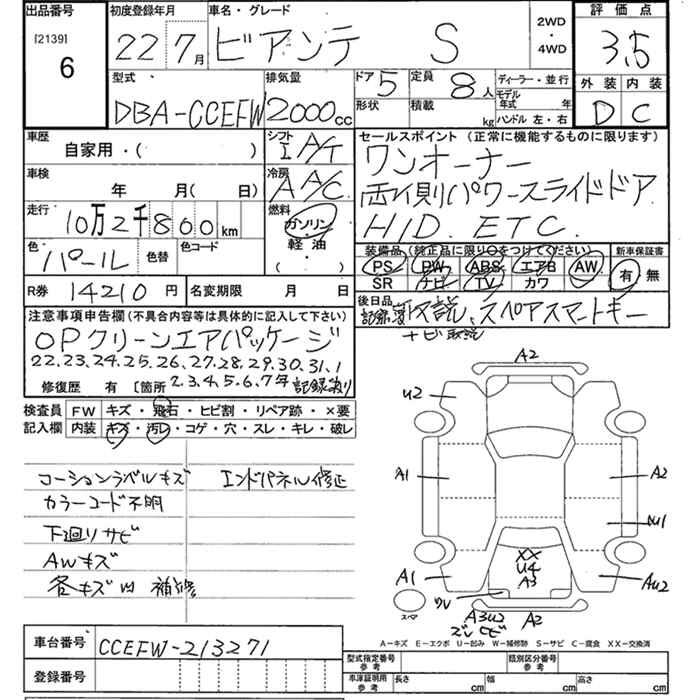 出品番号 初度登録年月 車名・グレード 評価点
[2139]
6
22 7月 ビアンテ S
2WD
・
4WD
3.5
外装 内装
D C
型式 排気量 ドア 定員 ディーラー・並行
DBA-CCEFW 2000cc 5 8人
形状 積載 kg
モデル年式 年
ハンドル 左・右
車歴 シフト セールスポイント (正常に機能するものに限ります)
自家用・( ) I A/T
ワンオーナー
車検 冷房
年 月(日) A A/C
両側パワースライドドア
走行 燃料
10万2千800km ガソリン・軽・油・( )
HID. ETC.
色 色替 色コード
パール
装備品 (純正品に限り○をつけてください) 新車保証書
PS PW ABS エアB AW 有・無
SR ナビ TV カワ
R券 14210円 名変期限 月 日
後日品 記録簿 取説、スペアスマートキー
+ナビ取説
注意事項申告欄(不具合内容等は具体的に記入して下さい)
OPクリーンエアパッケージ
22.23.24.25.26.27.28.29.30.31.1
2.3.4.5.6.7年 記録簿有り
修復歴 有 〔箇所
検査員記入欄 FW キズ・飛石・ヒビ割・リペア跡・×要
内装 キズ・汚レ・コゲ・穴・スレ・キレ・破レ
コーションラベルキズ エンドパネル修正
カラーコード不明
下廻りサビ
AWキズ
各キズ凹 補修
A2
U2
A1 A2
U1
XX
U4
A3
A1 AU2
ワレ
A3U2 A2
スペア
A-キズ E-エクボ U-凹み W-補修跡 S-サビ C-腐食 XX-交換済
車台番号 CCEFW-213271
登録番号
型式指定番号 参考 類別区分番号 参考
車庫証明用 参考 長さ cm 幅 cm 高さ cm